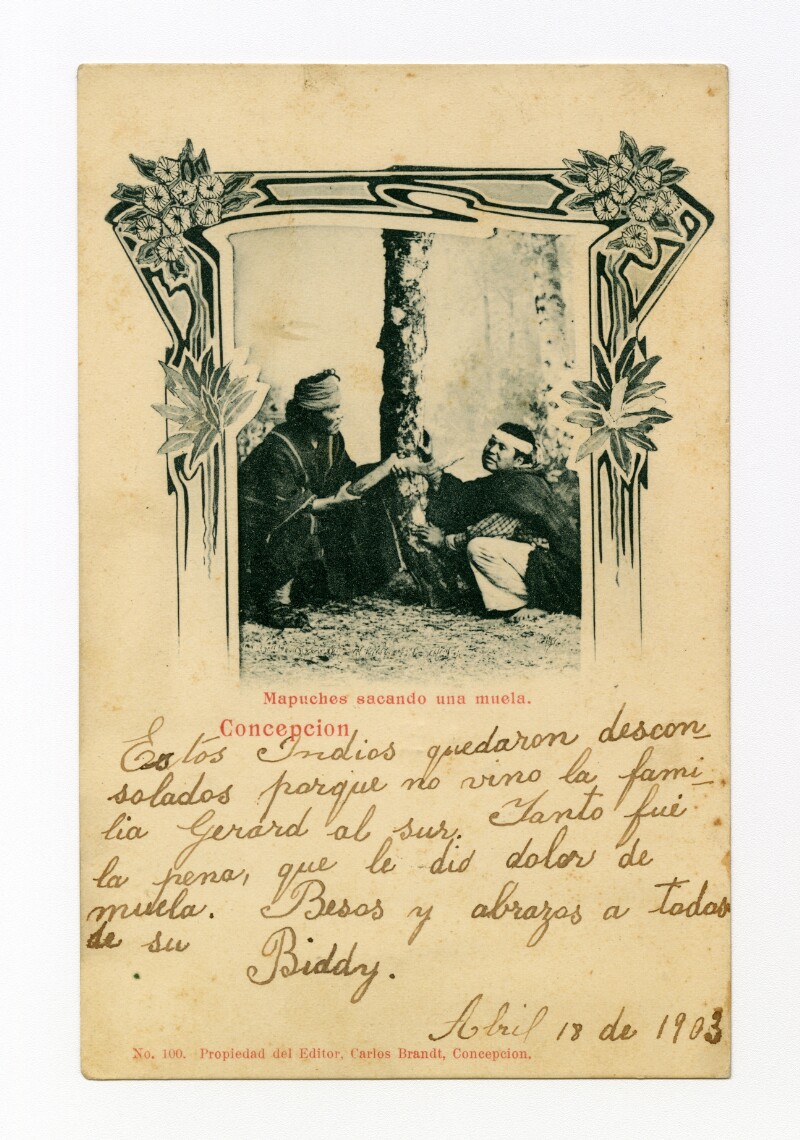 Mapuches sacando una muela.
Concepcion
Estos Indios quedaron descon-
solados porque no vino la fami-
lia Gerard al sur. Tanto fué
la pena, que le dió dolor de
muela. Besos y abrazos a todas
de su
Biddy.
Abril 18 de 1903
No. 100. Propiedad del Editor, Carlos Brandt, Concepcion.